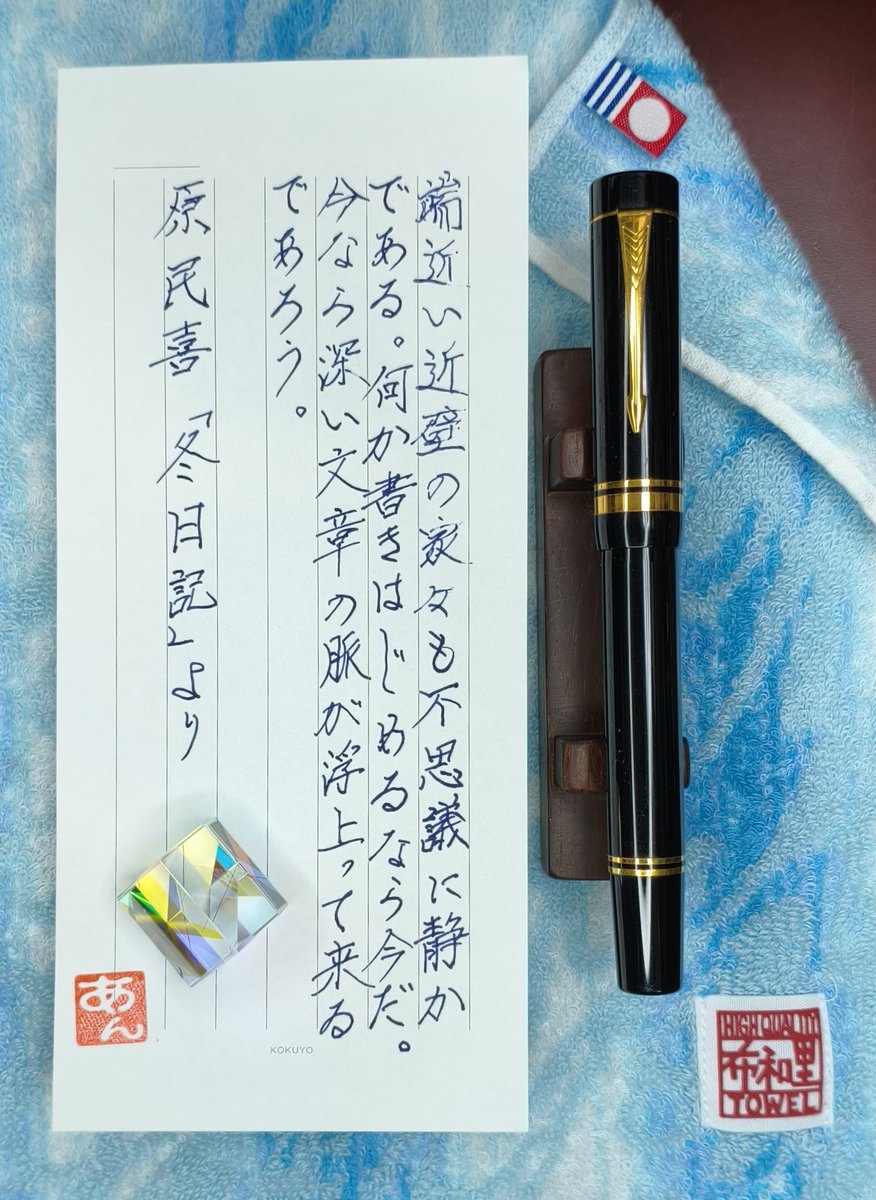 端近い近壁の家々も不思議に静か
である。何か書きはじめるなら今だ。
今なら深い文章の脈が浮上って来る
であろう。
原民喜「冬日記」より
あん
KOKUYO
HIGH QUALITY
布和里
TOWEL